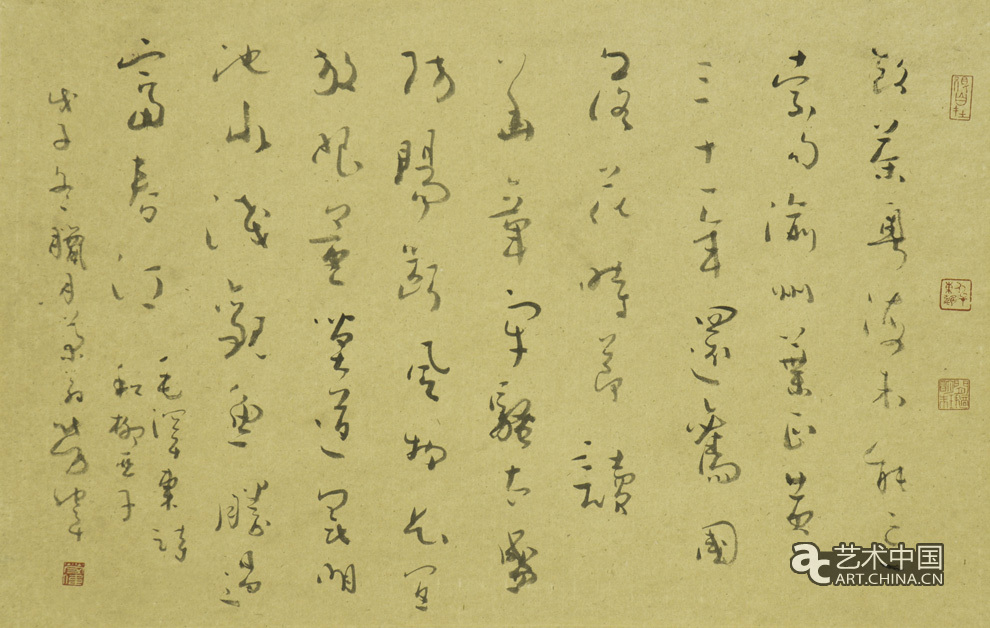 飲茶粵海未能忘
索句渝州葉正黄
三十一年還舊國
落花時節讀
華章牢騷太盛
防腸斷風物長宜
放眼量莫道昆明
池水淺觀魚勝過
富春江
毛澤東詩
和柳亞子
戊子冬臘月
艺术中国
ART.CHINA.CN